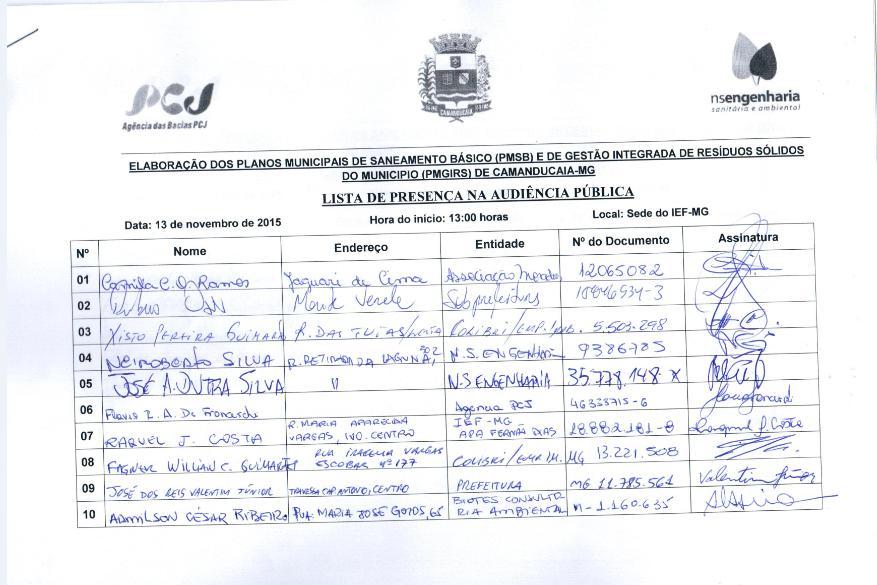 PCJ
Agência das Bacias PCJ
CAMANDUCAIA
nsengenharia
sanitária e ambiental
ELABORAÇÃO DOS PLANOS MUNICIPAIS DE SANEAMENTO BÁSICO (PMSB) E DE GESTÃO INTEGRADA DE RESÍDUOS SÓLIDOS
DO MUNICIPIO (PMGIRS) DE CAMANDUCAIA-MG
LISTA DE PRESENÇA NA AUDIÊNCIA PÚBLICA
Data: 13 de novembro de 2015 Hora do início: 13:00 horas Local: Sede do IEF-MG
Nº Nome Endereço Entidade Nº do Documento Assinatura
01 Camilla C. O. Ramos Jaguari de Cima Associação 12065082
02 Monte Verde Subprefeitura
03 XISTO PEREIRA GUIMARÃ R. DAS TUIAS COLIBRI 5.503.298
04 NEIROBERTO SILVA R. RETIRADA DA LAGUNA, 502 N.S. ENGENHARIA 9386785
05 JOSÉ A. SILVA 11 N.S ENGENHARIA 35.778.148 X
06 Agencia PCJ 46338715-6
07 RAQUEL J. COSTA R. MARIA APARECIDA
VARGAS, 140. CENTRO IEF-MG
APA FERNÃO DIAS 28.882.181-8 Raquel J. Costa
08 FAGNER WILLIAN C. GUIMARÃES RUA IZABELLA VARGAS
ESCOBAR Nº 177 COLIBRI MG 13.221.508
09 JOSÉ DOS REIS VALENTIM JÚNIOR TRAVESSA CAP. ANTONIO, CENTRO PREFEITURA MG 11.785.561 Valentim Júnior
10 ADMILSON CÉSAR RIBEIRO RUA. MARIA JOSÉ GODOS, 65 BIOTES CONSULTO
RIA AMBIENTAL M-1.160.635